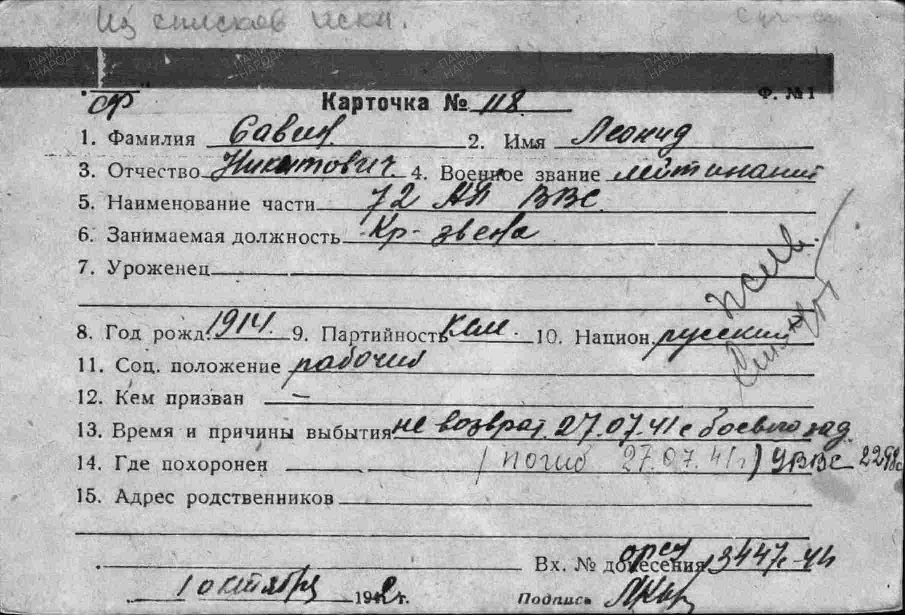 Из списков искл.
ПАМЯТЬ НАРОДА
Ф. №1
Карточка № 118.
1. Фамилия Савин 2. Имя Леонид
3. Отчество Никитович 4. Военное звание лейтинант
5. Наименование части 72 АП ВВС
6. Занимаемая должность Кр- звена
7. Уроженец
8. Год рожд. 1914. 9. Партийность 10. Национ. русский
11. Соц. положение рабочий
12. Кем призван —
13. Время и причины выбытия не возврат. 27.07.41 с боевого зад.
14. Где похоронен (погиб 27.07.41г) УВВС
15. Адрес родственников
Вх. № донесения 13447с-44
1 октября 194 г. Подпись